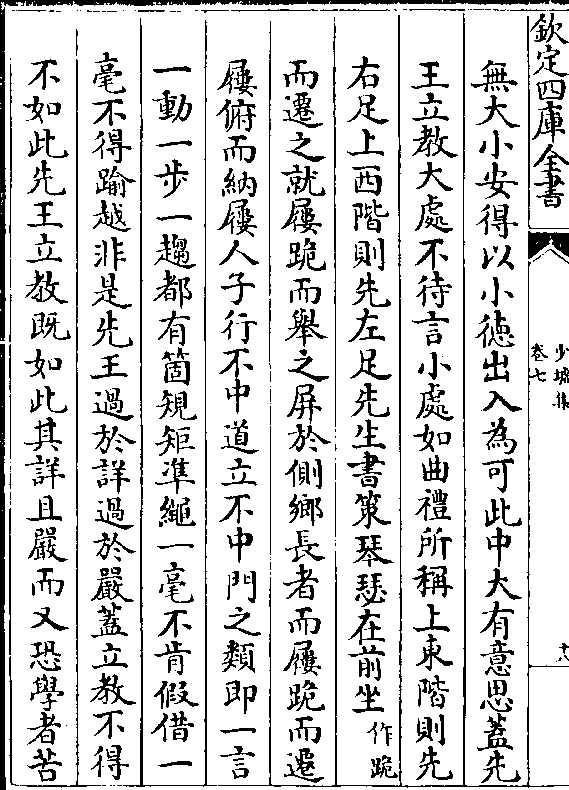 欽定四庫全書
少墟集
卷七
十八
無大小安得以小德出入為可此中大有意思蓋先
王立教大處不待言小處如曲禮所稱上東階則先
右足上西階則先左足先生書策琴瑟在前坐作跪
而遷之就屨跪而舉之屏於側鄉長者而屨跪而遷
屨俯而納屨人子行不中道立不中門之類即一言
一動一步一趨都有箇規矩凖繩一毫不肯假借一
毫不得踰越非是先王過於詳過於嚴蓋立教不得
不如此先王立教既如此其詳且嚴而又恐學者苦